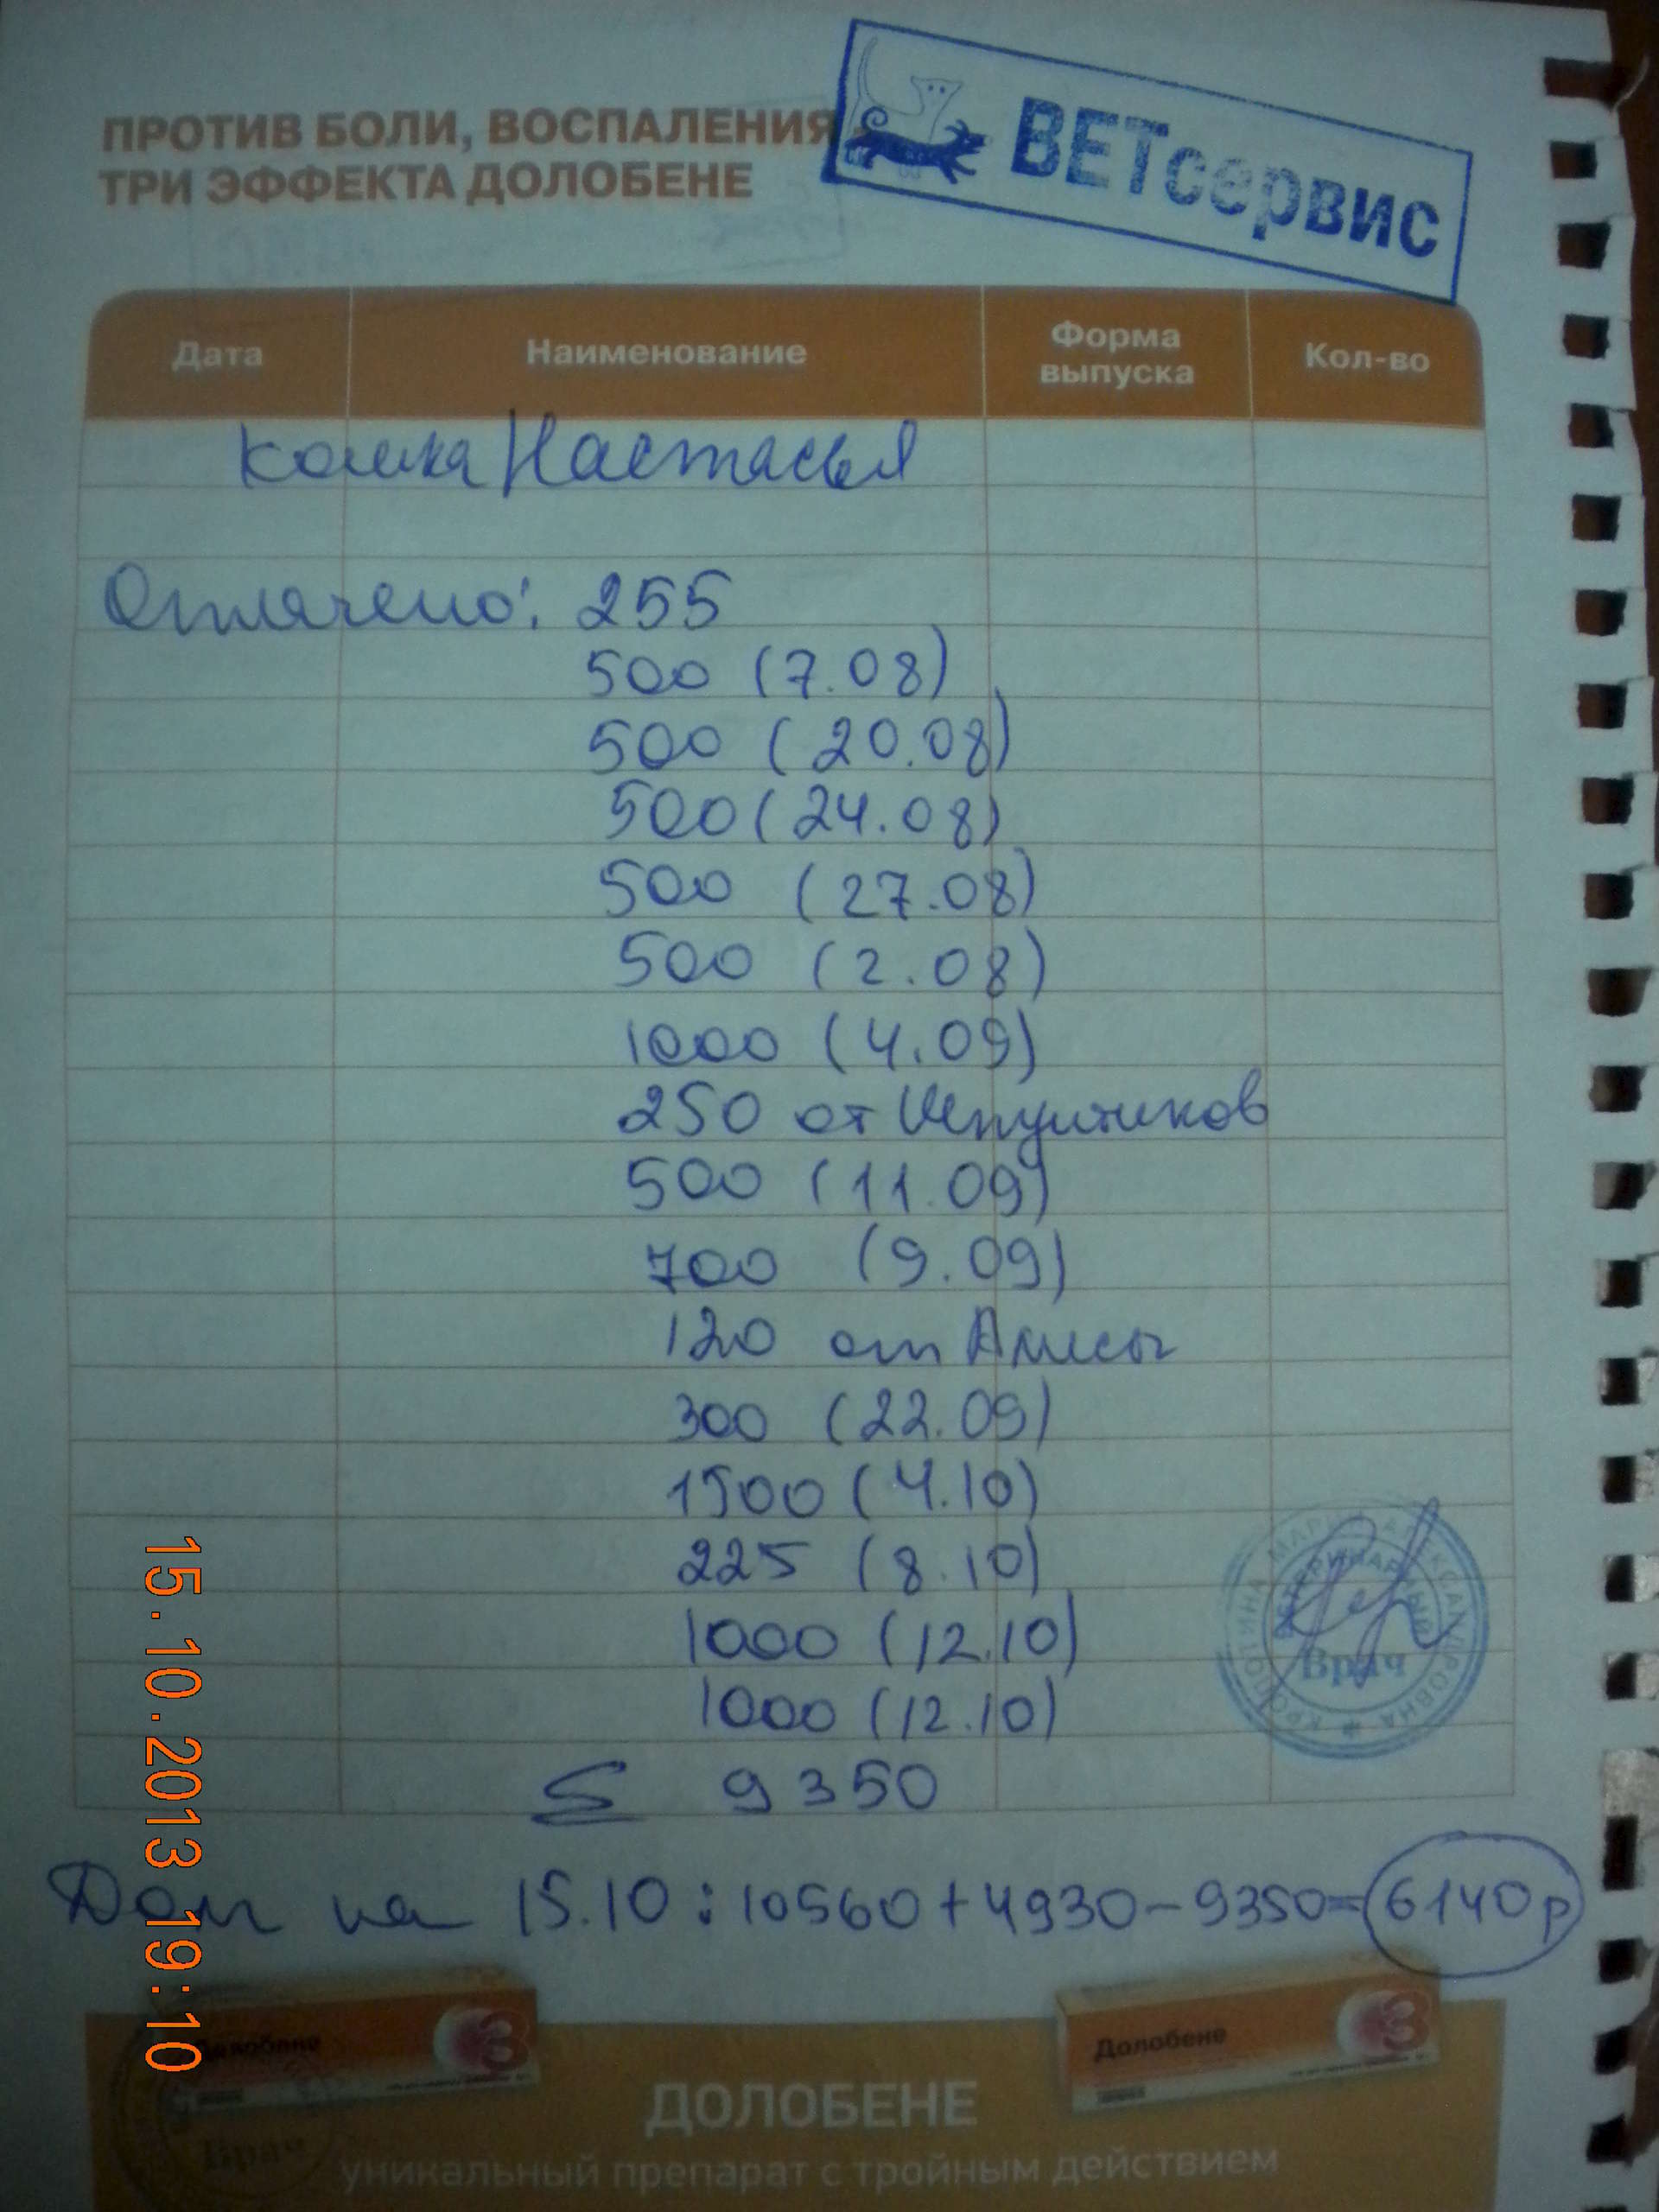 ПРОТИВ БОЛИ, ВОСПАЛЕНИЯ
ТРИ ЭФФЕКТА ДОЛОБЕНЕ
ВЕТсервис
Дата Наименование Форма выпуска Кол-во
кошка Настасья
Оплачено: 255
500 (7.08)
500 (20.08)
500 (24.08)
500 (27.08)
500 (2.08)
1000 (4.09)
250 от
500 (11.09)
700 (9.09)
120 от Алисы
300 (22.09)
1500 (4.10)
225 (8.10)
1000 (12.10)
1000 (12.10)
ВЕТЕРИНАРНЫЙ
Врач
Σ 9350
Долг на 15.10: 10560+4930-9350=6140р
15.10.2013 19:10
Долобене 3
Долобене 3
ДОЛОБЕНЕ
Врач
уникальный препарат с тройным действием